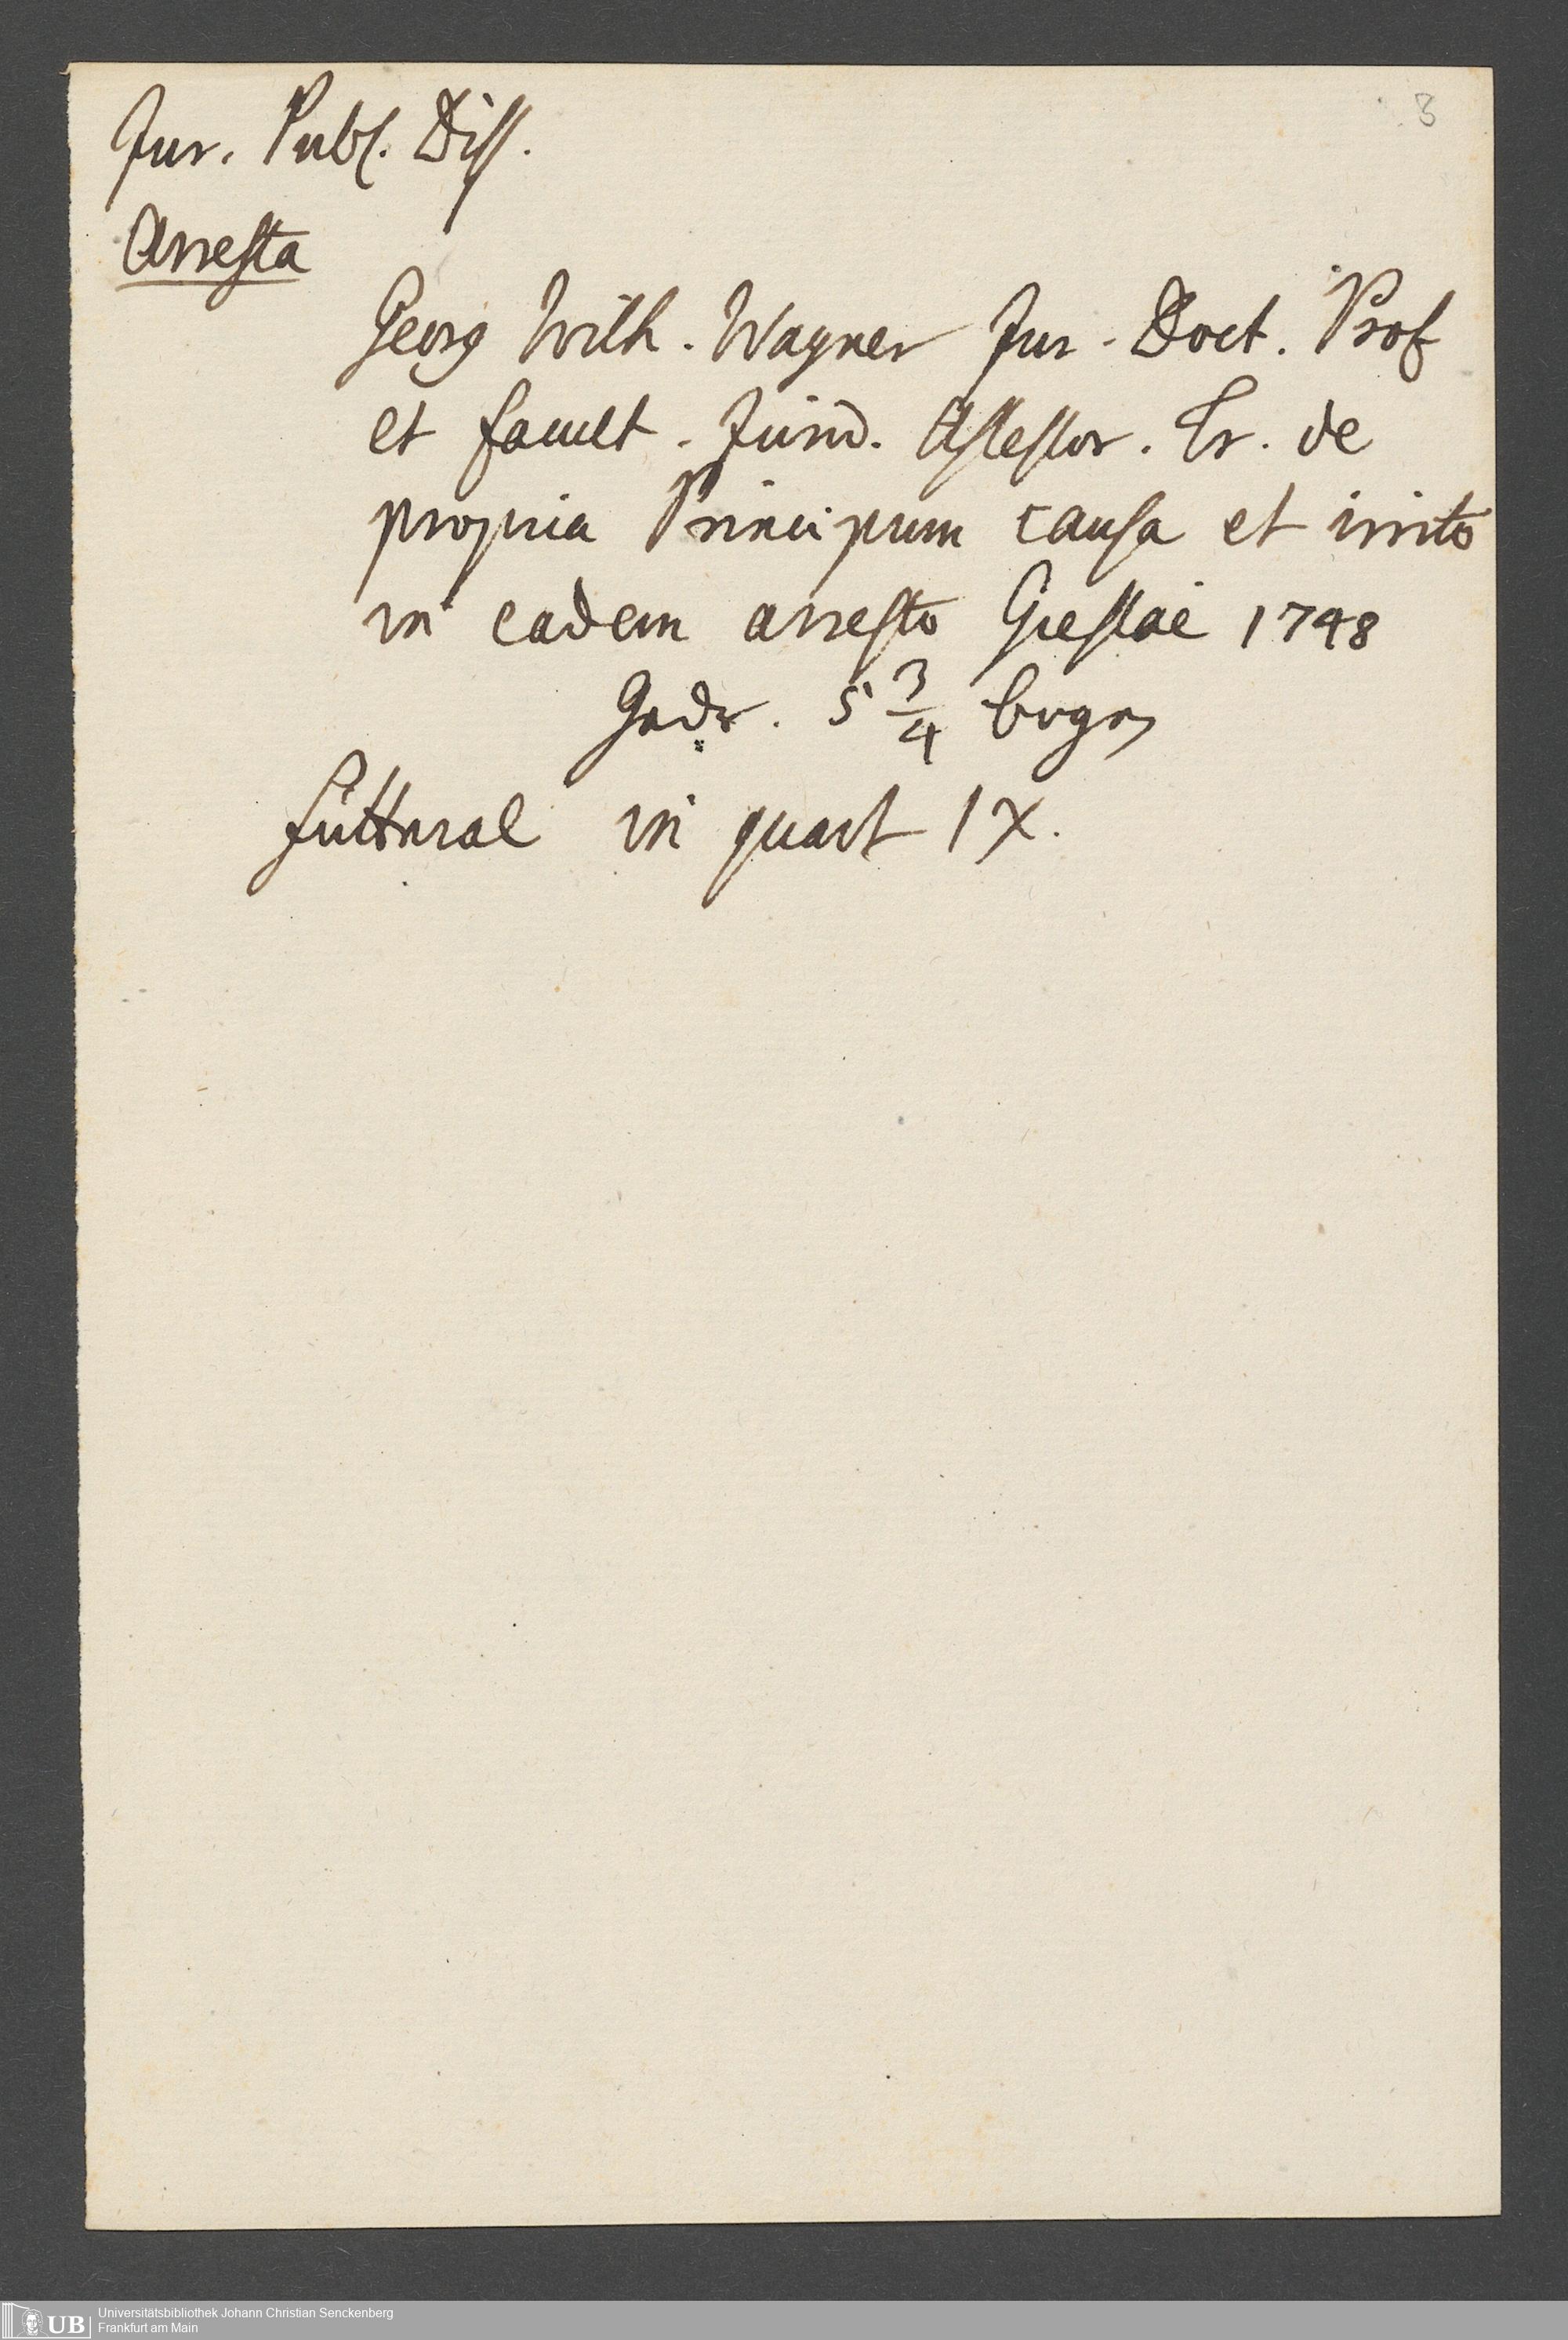 3
Jur. Publ. Diss.
Arresta
Georg Wilh. Wagner Jur. Doct. Prof
et facult. Jurid. Assessor. Tr. de
propria Principum causa et irrito
in eadem arresto Giessae 1748
Gedr. 5 3/4 bogen
Futteral in quart IX.
UB Universitätsbibliothek Johann Christian Senckenberg
Frankfurt am Main